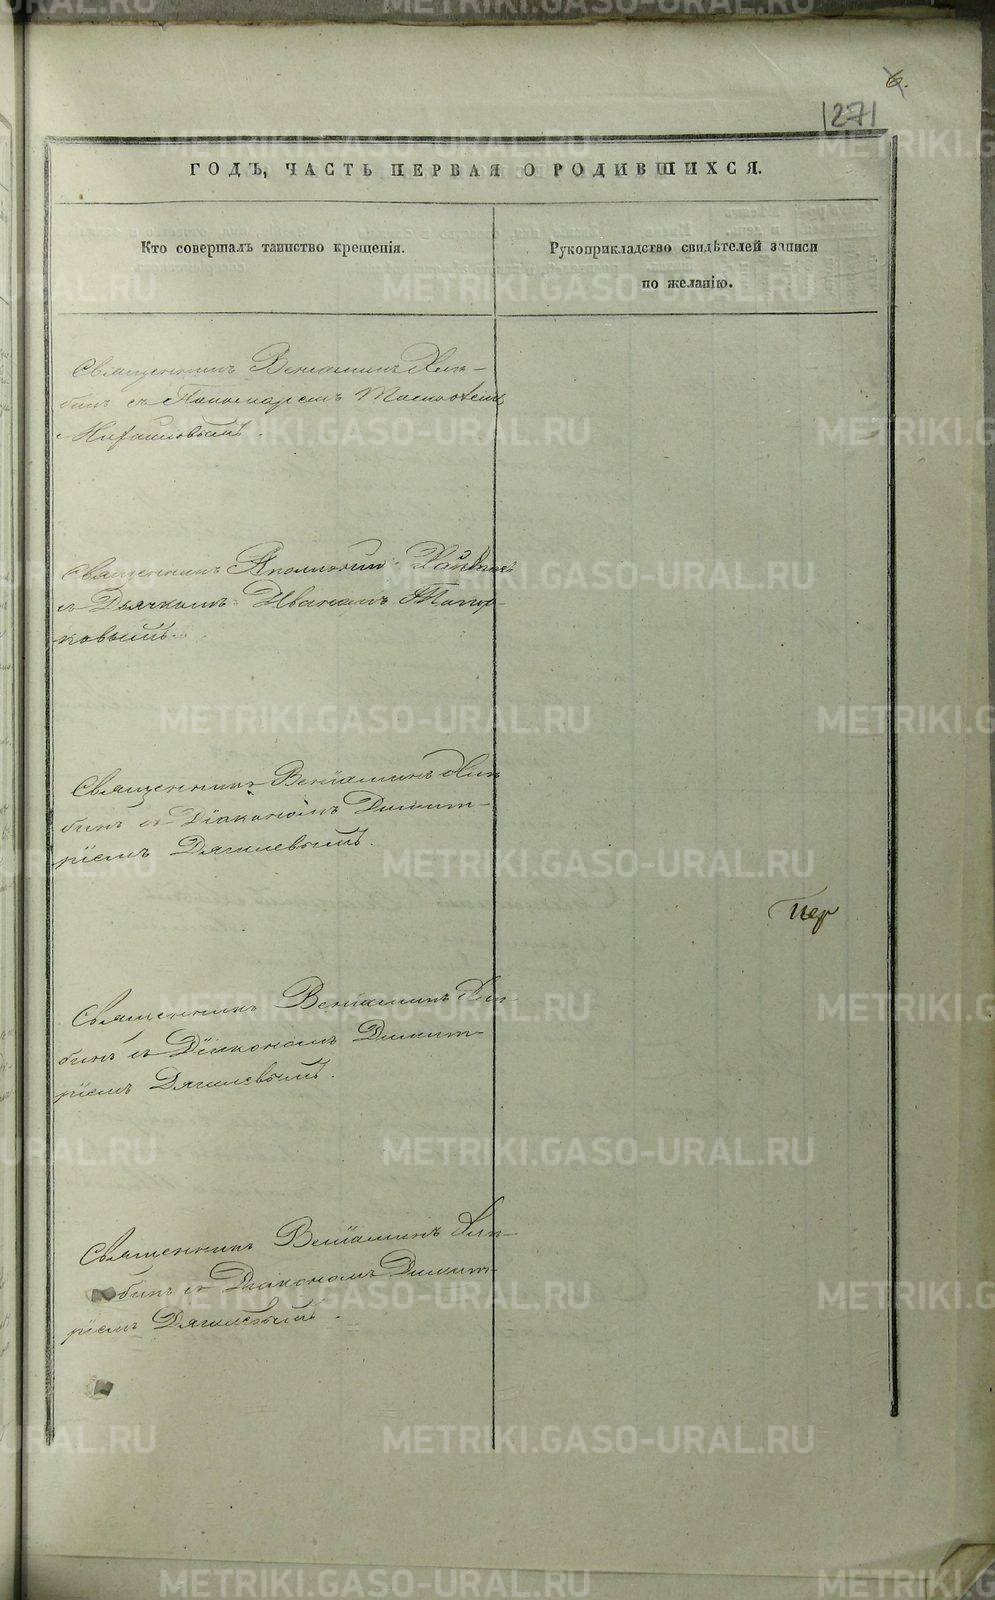 6.
1271
ГОДЪ, ЧАСТЬ ПЕРВАЯ О РОДИВШИХСЯ.
Кто совершалъ таинство крещенія.
Рукоприкладство свидѣтелей записи
по желанію.
Священникъ Веніаминъ
бинъ съ Пономаремъ
Священникъ
съ Дьячкомъ Иваномъ Топор-
ковымъ.
Священникъ Веніаминъ
бинъ съ Діакономъ Димит-
ріемъ Дягилевымъ.
Пер
Священникъ Веніаминъ
бинъ съ Діакономъ Димит-
ріемъ Дягилевымъ.
Священникъ Веніаминъ
бинъ съ Діакономъ Димит-
ріемъ Дягилевымъ.
METRIKI.GASO-URAL.RU